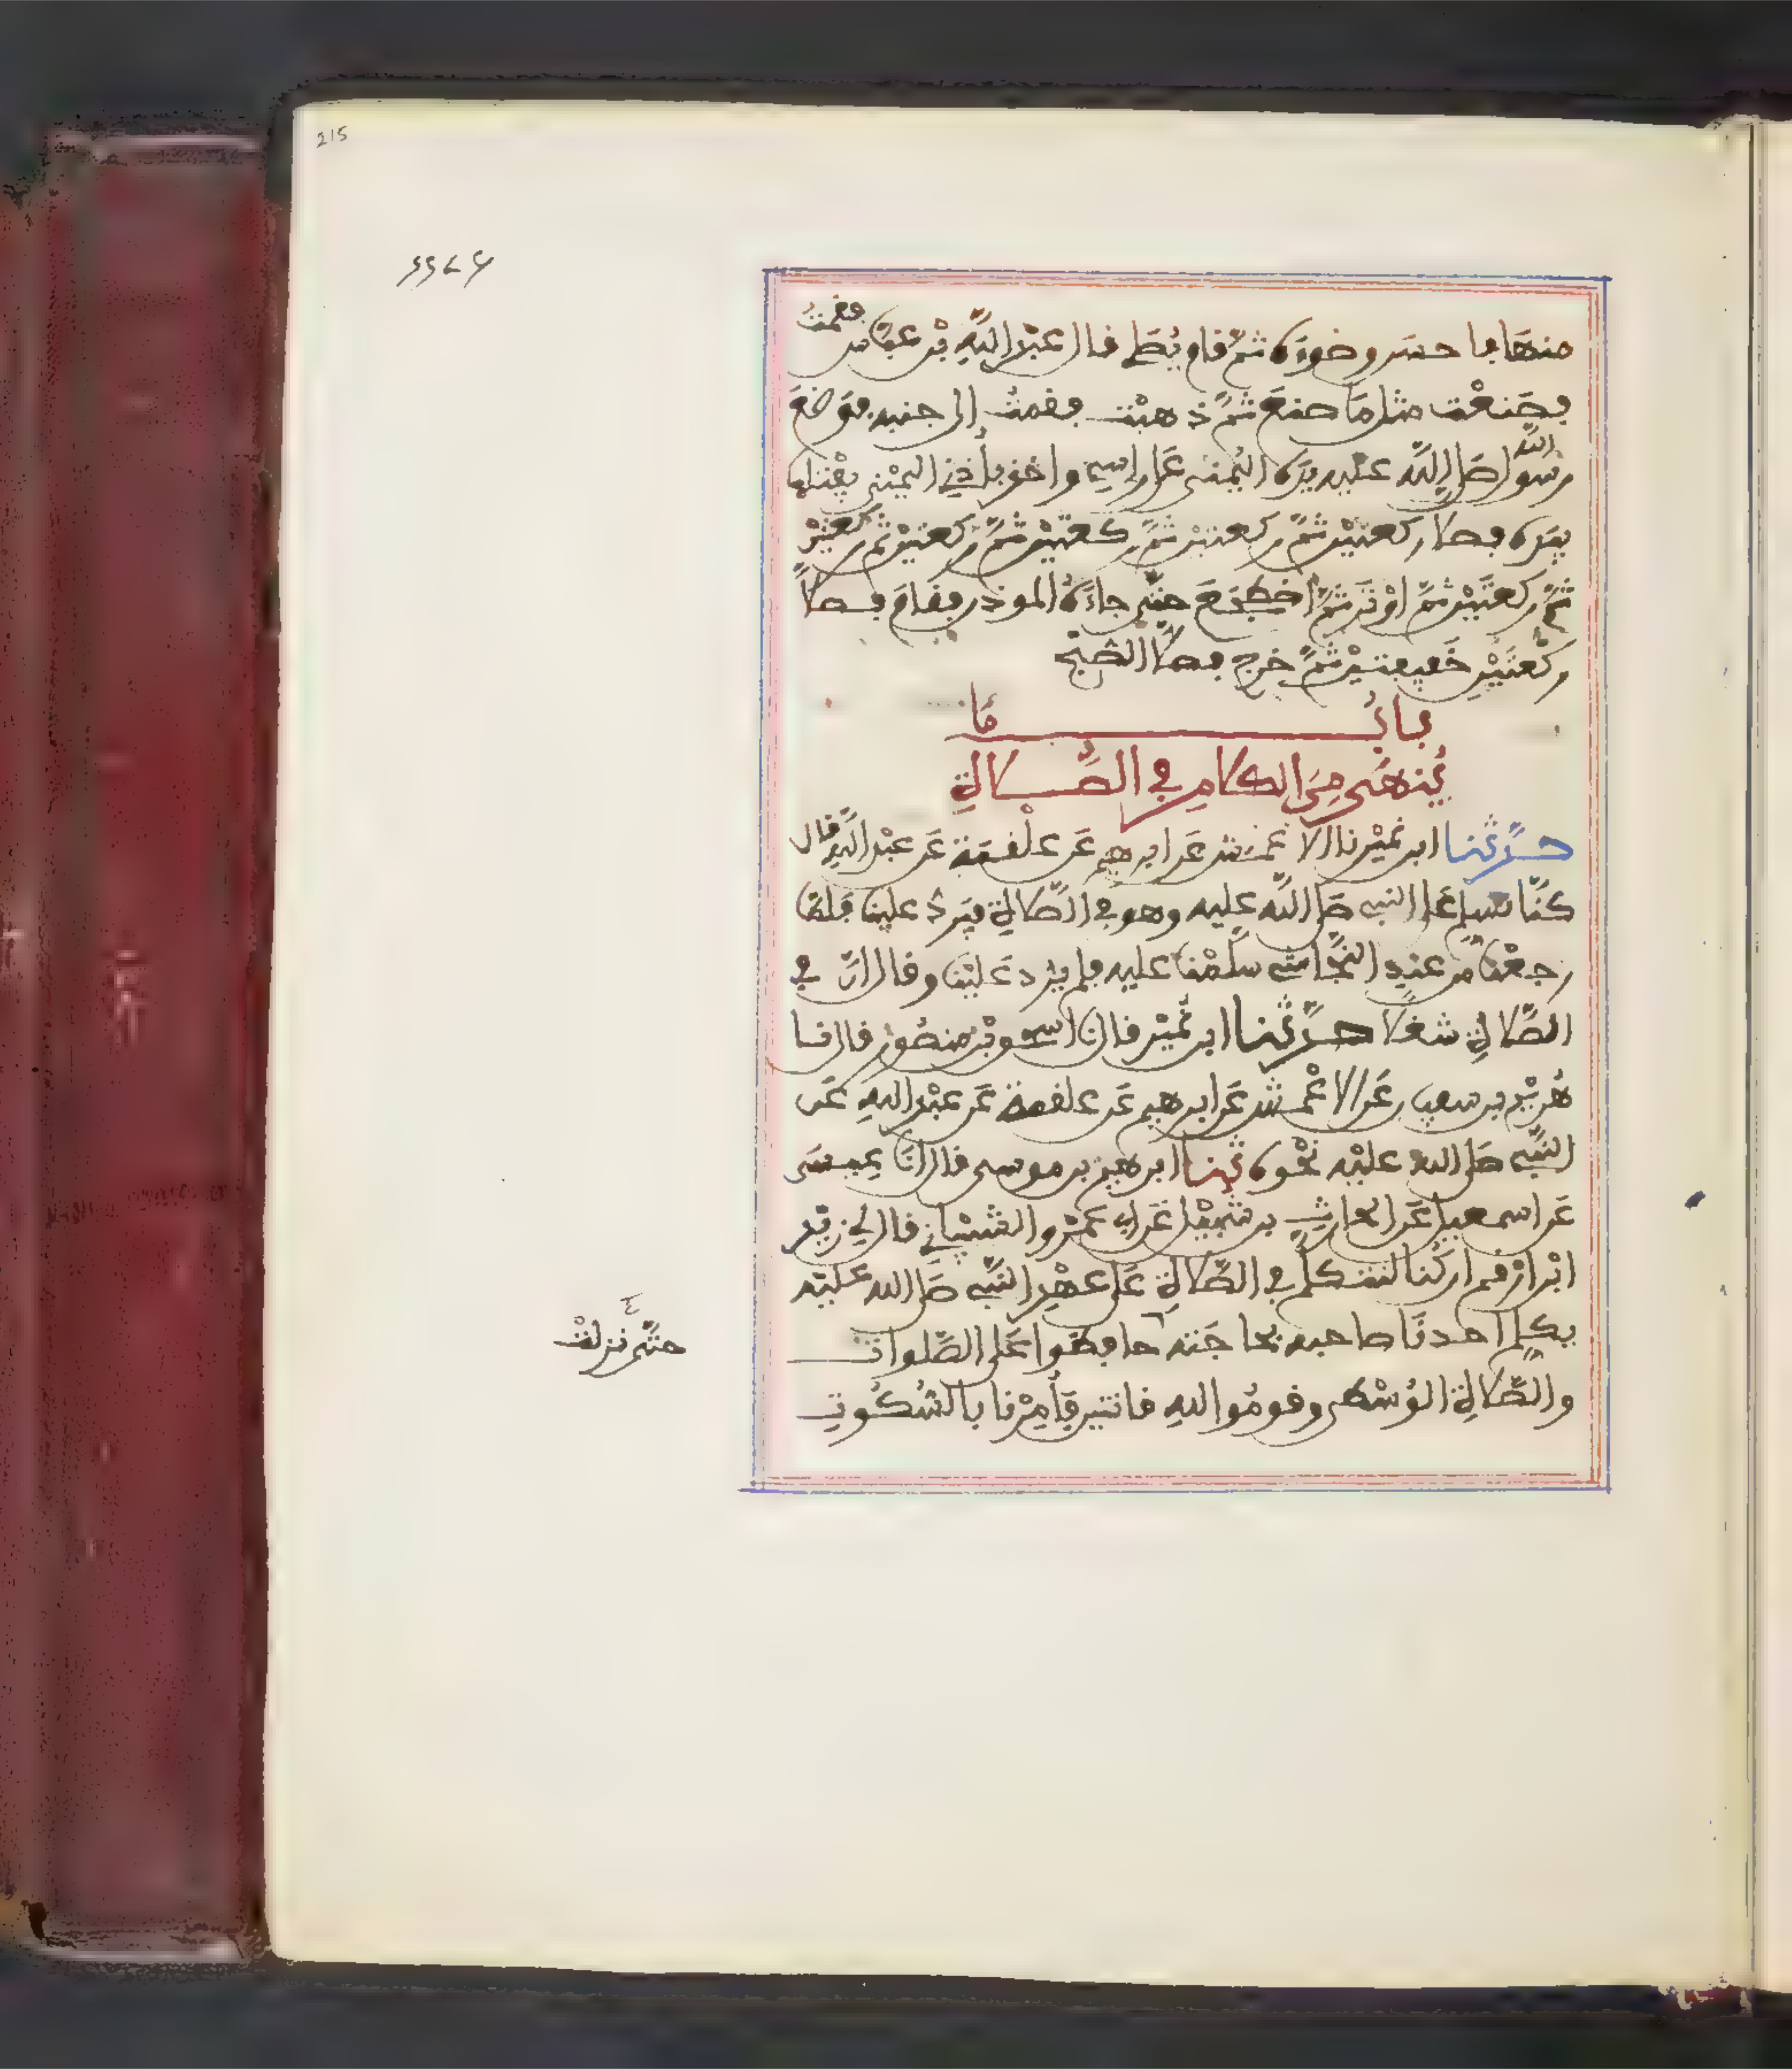 215
منها فاحسن وضوءه ثم قام يصلي قال عبد الله بن عباس فقمت
فصنعت مثل ما صنع ثم ذهبت فقمت إلى جنبه فوضع
رسول الله صلى الله عليه يده اليمنى على راسي واخذ بأذني اليمنى يفتلها
بيده فصلى ركعتين ثم ركعتين ثم ركعتين ثم ركعتين ثم ركعتين
ثم ركعتين ثم اوتر ثم اضطجع حتى جاءه الموذن فقام فصلى
ركعتين خفيفتين ثم خرج فصلى الصبح
باب ما
ينهى من الكلام في الصلاة
حدثنا ابن نمير نا الاعمش عن ابرهيم عن علقمة عن عبد الله قال
كنا نسلم على النبي صلى الله عليه وهو في الصلاة فيرد علينا فلما
رجعنا من عند النجاشي سلمنا عليه فلم يرد علينا وقال ان في
الصلاة شغلا حدثنا ابن نمير قال نا اسحق بن منصور قال نا
هريم بن سفين عن الاعمش عن ابرهيم عن علقمة عن عبد الله عن
النبي صلى الله عليه نحوه ثنا ابرهيم بن موسى قال انا عيسى
عن اسمعيل عن الحارث بن شبيل عن ابي عمرو الشيباني قال لي زيد
ابن ارقم ان كنا لنتكلم في الصلاة على عهد النبي صلى الله عليه
يكلم احدنا صاحبه بحاجته حافظوا على الصلوات
حتى نزلت
والصلاة الوسطى وقوموا لله قانتين فأمرنا بالسكوت